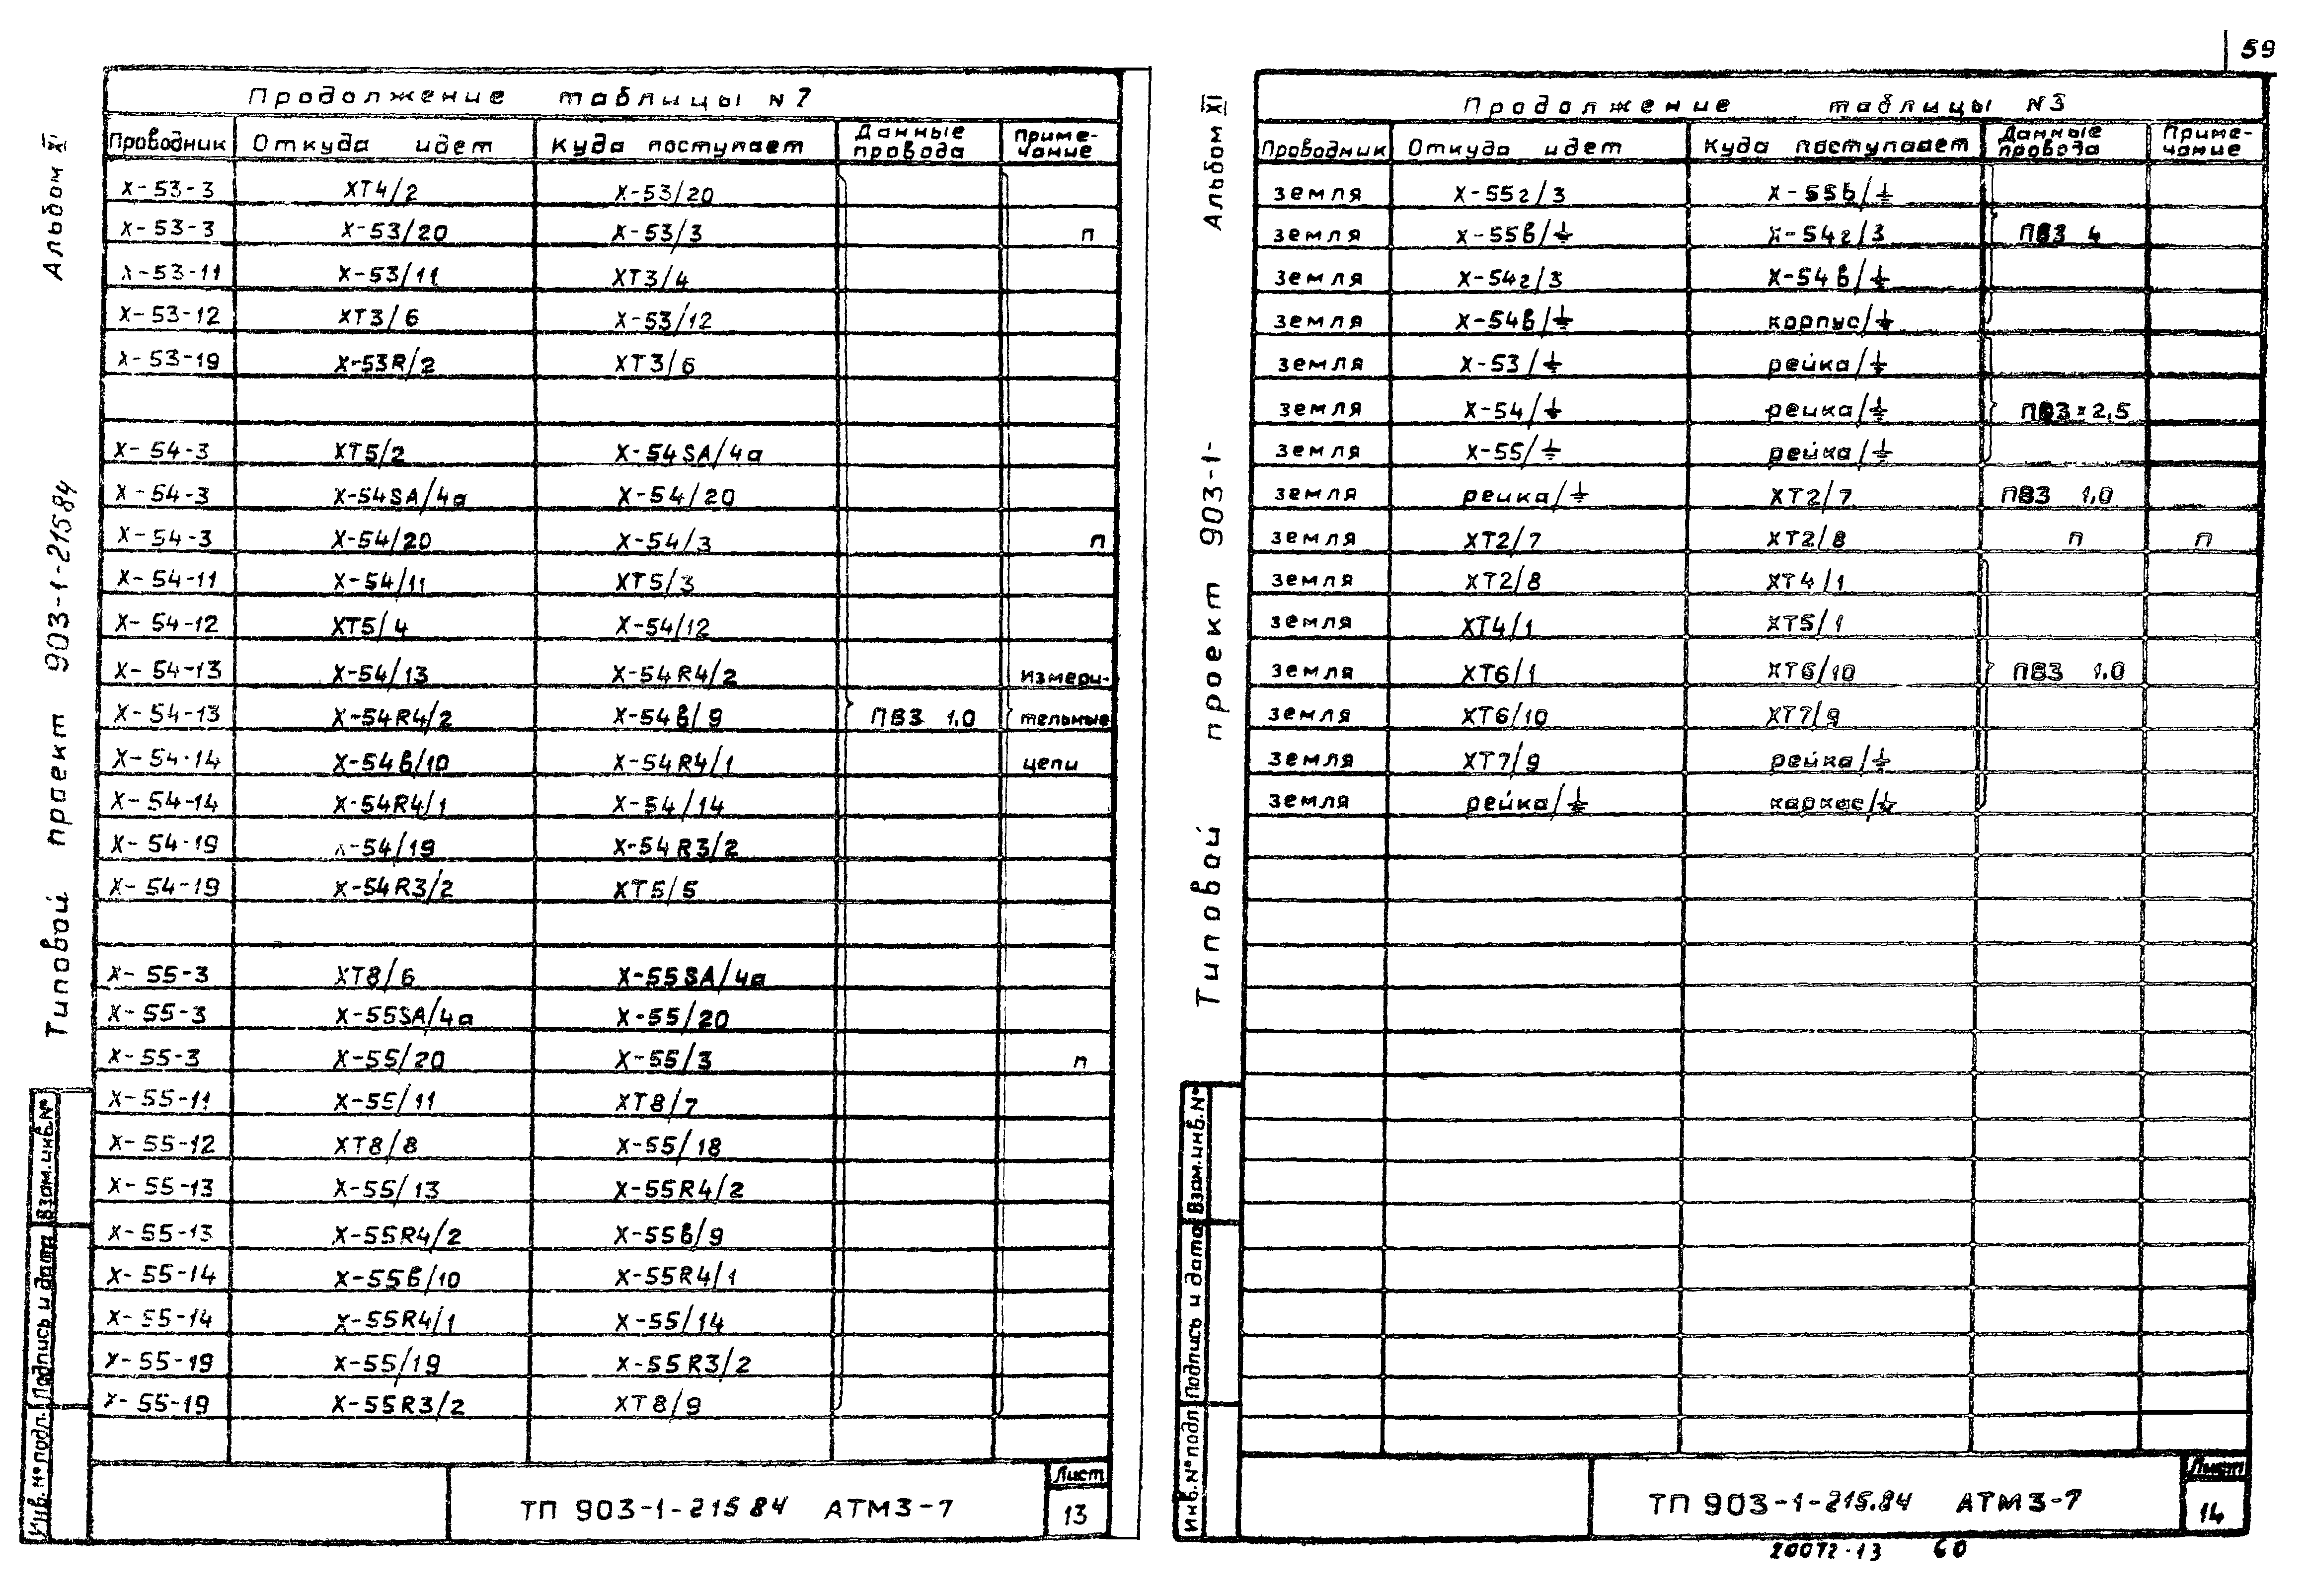 59
Альбом XI
Типовой проект 903-1-215 84
Продолжение таблицы N 7
Проводник Откуда идет Куда поступает Данные провода Примечание
X-53-3 XT4/2 X-53/20
X-53-3 X-53/20 X-53/3 п
X-53-11 X-53/11 XT3/4
X-53-12 XT3/6 X-53/12
X-53-19 X-53R/2 XT3/6
X-54-3 XT5/2 X-54SA/4a
X-54-3 X-54SA/4a X-54/20
X-54-3 X-54/20 X-54/3 п
X-54-11 X-54/11 XT5/3
X-54-12 XT5/4 X-54/12
X-54-13 X-54/13 X-54R4/2 Измери-
X-54-13 X-54R4/2 X-54в/9 ПВ3 1.0 тельные
X-54-14 X-54в/10 X-54R4/1 цепи
X-54-14 X-54R4/1 X-54/14
X-54-19 X-54/19 X-54R3/2
X-54-19 X-54R3/2 XT5/5
X-55-3 XT8/6 X-55SA/4a
X-55-3 X-55SA/4a X-55/20
X-55-3 X-55/20 X-55/3 п
X-55-11 X-55/11 XT8/7
X-55-12 XT8/8 X-55/18
X-55-13 X-55/13 X-55R4/2
X-55-13 X-55R4/2 X-55в/9
X-55-14 X-55в/10 X-55R4/1
X-55-14 X-55R4/1 X-55/14
X-55-19 X-55/19 X-55R3/2
X-55-19 X-55R3/2 XT8/9
Инв. № подл. Подпись и дата Взам. инв. №
ТП 903-1-215 84 АТМ3-7
Лист
13
Альбом XI
Типовой проект 903-1-
Продолжение таблицы N3
Проводник Откуда идет Куда поступает Данные провода Примечание
земля X-55г/3 X-55в/⏚
земля X-55в/⏚ X-54г/3 ПВ3 4
земля X-54г/3 X-54в/⏚
земля X-54в/⏚ корпус/⏚
земля X-53/⏚ рейка/⏚
земля X-54/⏚ рейка/⏚ ПВ3×2,5
земля X-55/⏚ рейка/⏚
земля рейка/⏚ XT2/7 ПВ3 1,0
земля XT2/7 XT2/8 п п
земля XT2/8 XT4/1
земля XT4/1 XT5/1
земля XT6/1 XT6/10 ПВ3 1.0
земля XT6/10 XT7/9
земля XT7/9 рейка/⏚
земля рейка/⏚ каркас/⏚
Инв. № подл. Подпись и дата Взам. инв. №
ТП 903-1-215.84 АТМ3-7
Лист
14
20072-13 60